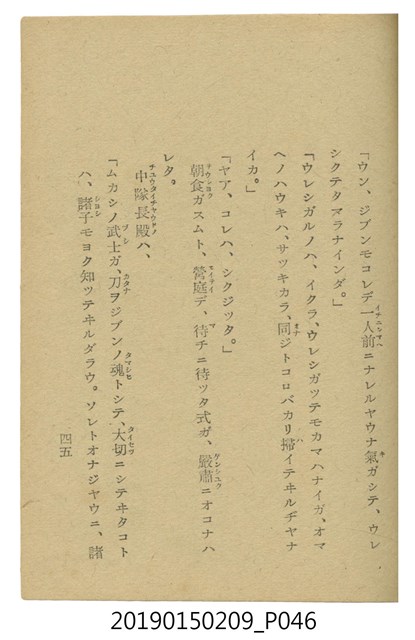 「ウン、ジブンモコレデ一人前ニナレルヤウナ氣ガシテ、ウレ
シクテタマラナインダ。」
「ウレシガルノハ、イクラ、ウレシガッテモカマハナイガ、オマ
ヘノハウキハ、サッキカラ、同ジトコロバカリ掃イテヰルヂヤナ
イカ。」
「ヤア、コレハ、シクジッタ。」
朝食ガスムト、營庭デ、待チニ待ッタ式ガ、嚴肅ニオコナハ
レタ。
中隊長殿ハ、
「ムカシノ武士ガ、刀ヲジブンノ魂トシテ、大切ニシテヰタコト
ハ、諸子モヨク知ッテヰルダラウ。ソレトオナジヤウニ、諸
四五
20190150209_P046